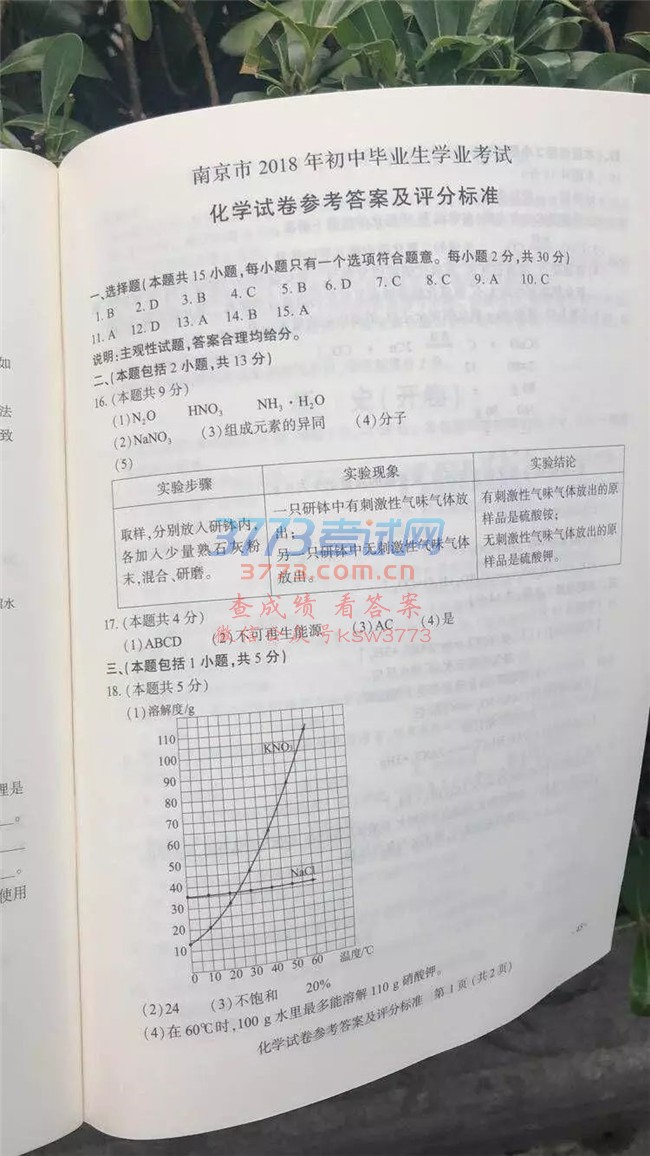 南京市 2018 年初中毕业生学业考试
化学试卷参考答案及评分标准
一、选择题(本题共 15 小题,每小题只有一个选项符合题意。每小题 2 分,共 30 分)
1. B 2. D 3. B 4. C 5. B 6. D 7. C 8. C 9. A 10. C
11. A 12. D 13. A 14. B 15. A
说明:主观性试题,答案合理均给分。
二、(本题包括 2 小题,共 13 分)
16. (本题共 9 分)
(1)N₂O HNO₃ NH₃·H₂O
(2)NaNO₃ (3)组成元素的异同 (4)分子
(5)
实验步骤 实验现象 实验结论
取样,分别放入研钵内,各加入少量熟石灰粉末,混合、研磨。
一只研钵中有刺激性气味气体放出;
另一只研钵中无刺激性气味气体放出。
有刺激性气味气体放出的原样品是硫酸铵;
无刺激性气味气体放出的原样品是硫酸钾。
3773考试网
3773.com.cn
查成绩 看答案
微信公众号ksw3773
17. (本题共 4 分)
(1)ABCD (2)不可再生能源 (3)AC (4)是
三、(本题包括 1 小题,共 5 分)
18. (本题共 5 分)
(1)溶解度/g
110
100
90
80
70
60
50
40
30
20
10
KNO₃
NaCl
0 10 20 30 40 50 60 温度/℃
(2)24 (3)不饱和 20%
(4)在 60℃时,100 g 水里最多能溶解 110 g 硝酸钾。
化学试卷参考答案及评分标准 第 1 页 (共 2 页)
·45·
如
法
致
水
理是
。
。
使用